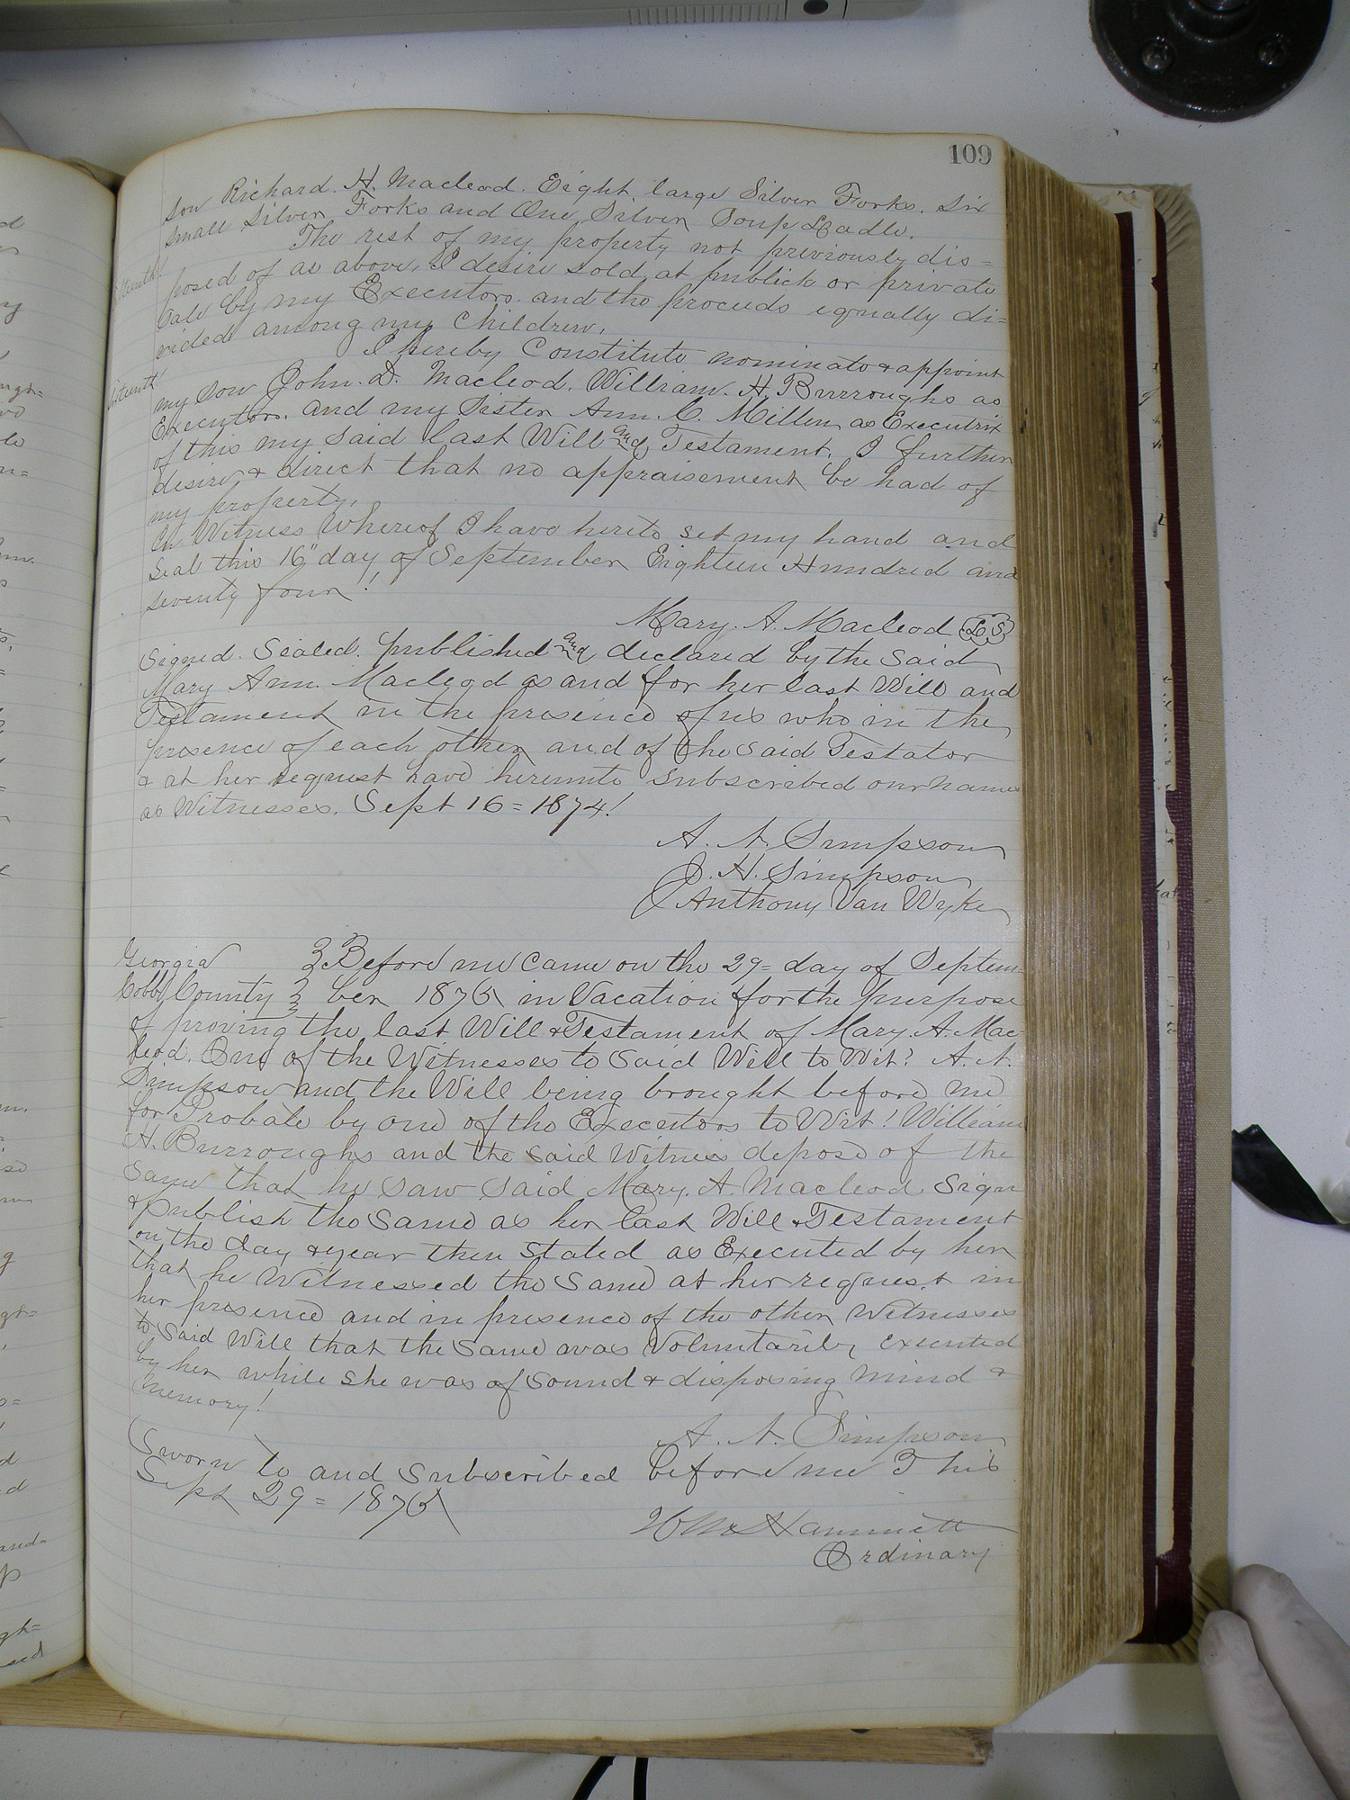 109
Son Richard. H. Macleod. Eight large Silver Forks. Six
Small Silver Forks and One Silver Soup Ladle.
The rest of my property not previously dis=
posed of as above, I desire sold at publick or private
Sale by my Executors. and the proceeds equally di=
vided among my Children.
I hereby Constitute nominate & appoint
my Son John. D. Macleod. William. H. Burroughs as
Executors. and my Sister Ann. C. Millen as Executrix
of this my Said last Will and Testament. I further
desire & direct that no appraisement be had of
my property.
In Witness Whereof I have hereto set my hand and
Seal this 16" day of September Eighteen Hundred and
Seventy four!
Mary. A. Macleod (L.S)
Signed. Sealed. published and declared by the Said
Mary Ann. Macleod as and for her last Will and
Testament in the presence of us who in the
presence of each other and of the Said Testator
& at her request have hereunto Subscribed our names
as Witnesses. Sept 16 = 1874!
A. N. Simpson
J. H. Simpson
Anthony Van Wyke
Georgia } Before me Came on the 29= day of Septem=
Cobb County } ber 1876 in Vacation for the purpose
of proving the last Will & Testament of Mary A. Mac=
leod. One of the Witnesses to Said Will to Wit? A. N.
Simpson and the Will being brought before me
for Probate by one of the Executors to Wit! William
H. Burroughs and the Said Witness deposed of the
Same that he Saw Said Mary. A. Macleod Sign
& publish the Same as her last Will & Testament
on the day & year then Stated as Executed by her
that he Witnessed the Same at her request in
her presence and in presence of the other Witnesses
to Said Will that the Same was Voluntarily executed
by her while She was of Sound & disposing Mind &
memory!
A. N. Simpson
Sworn to and Subscribed before me This
Sept 29 = 1876
Wm Hammett
Ordinary